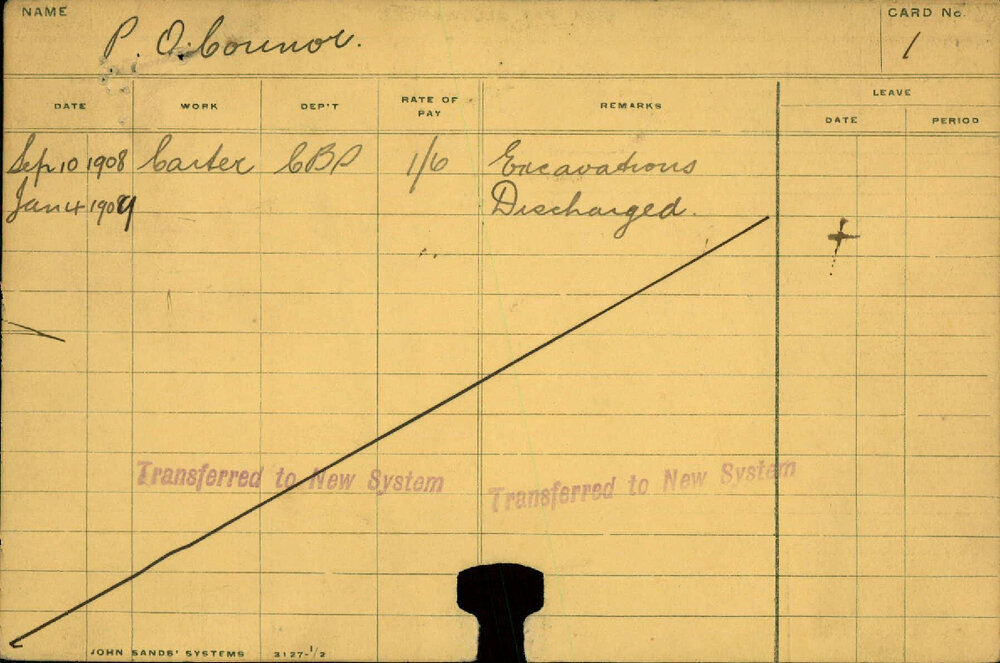 NAME
P. O'Connor.
CARD No.
1
DATE WORK DEP'T RATE OF PAY REMARKS LEAVE
DATE PERIOD
Sep 10 1908 Carter CBP 1/6 Excavations
Jan 4 1909 Discharged.
Transferred to New System Transferred to New System
JOHN SANDS' SYSTEMS 3127-1/2